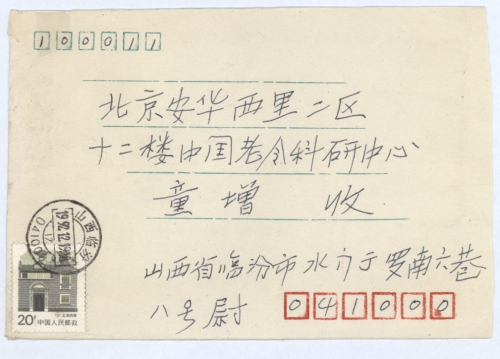 100011
北京安华西里二区
十二楼中国老令科研中心
童增 收
山西省临汾市水门于罗南六巷
八号尉 041000
山西临汾
041000
20分 中国人民邮政